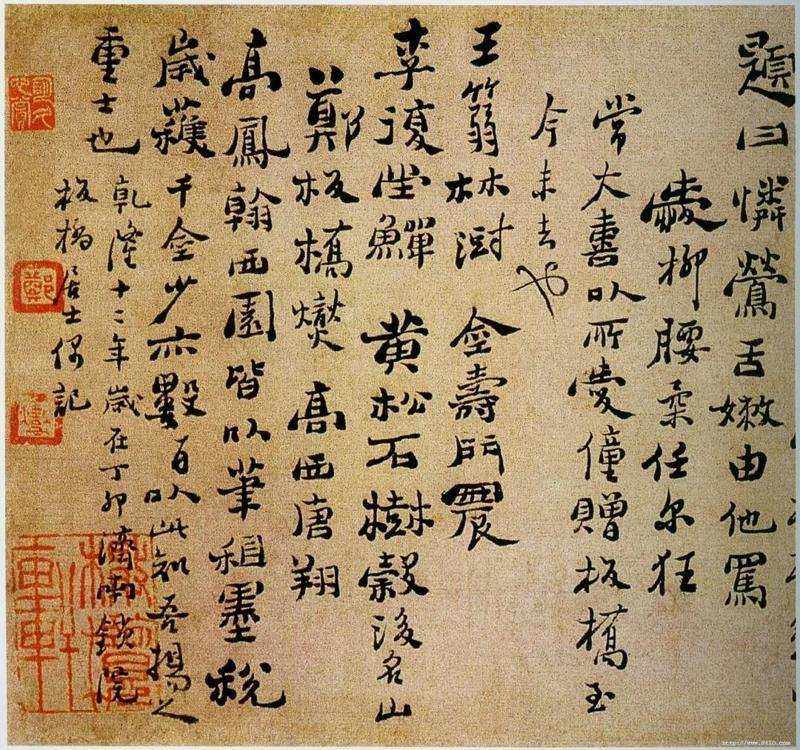 題曰憐鶯舌嫩由他罵
愛柳腰柔任尔狂
常大喜以所愛僮贈板橋至
今未去也
王篛林澍 金壽門農
李復堂鱓 黃松石樹穀後名山
鄭板橋燮 高西唐翔
高鳳翰西園皆以筆租墨稅
歲獲千金少亦數百以此知吾揚之
重士也
乾隆十二年歲在丁卯濟南鎖院
板橋居士偶記
鄭
http://www.9610.com